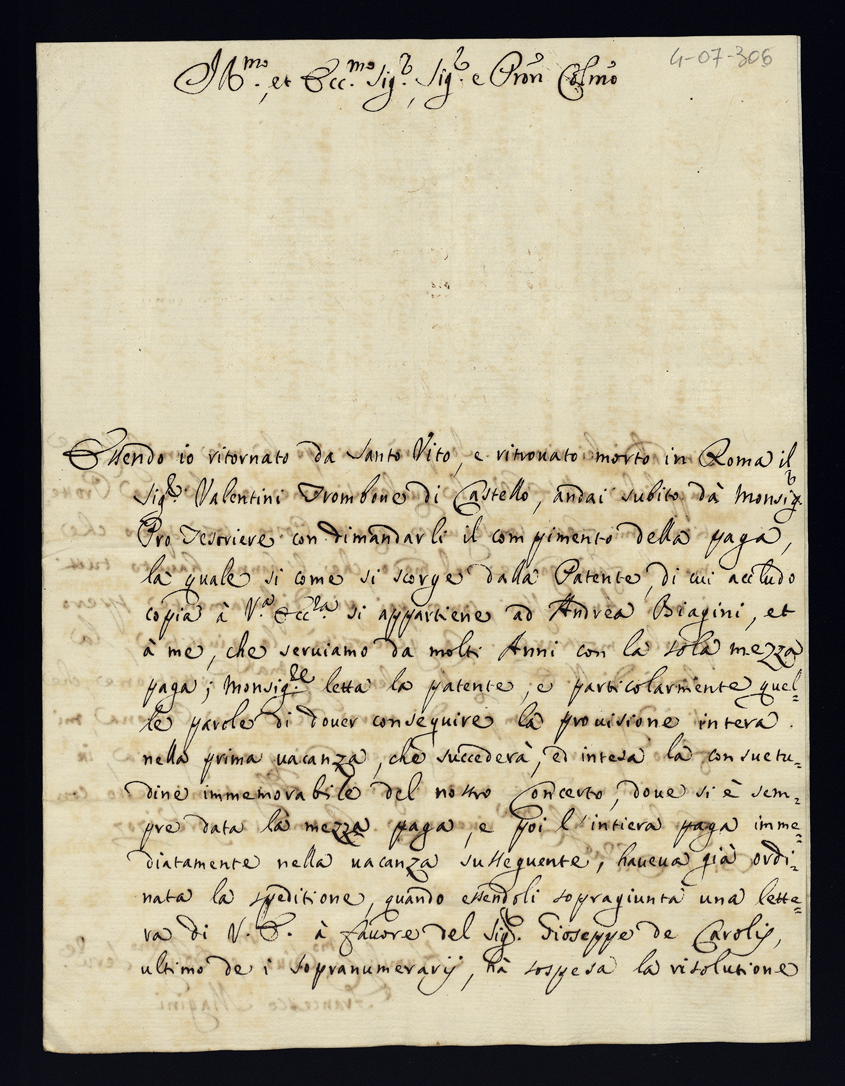 4-07-306
Ill.mo, et Ecc.mo Sig.r, Sig.r e Pron Colmo
Essendo io ritornato da Santo Vito, e ritrouato morto in Roma il
Sig.r Valentini Trombone di Castello, andai subito dà Monsig.r
Pro Tesoriere con dimandarli il compimento della paga,
la quale si come si scorge dalla Patente, di cui accludo
copia à V.a Ecc.la si appartiene ad Andrea Biagini, et
à me, che seruiamo da molti Anni con la sola mezza
paga; Monsig.re letta la patente, e particolarmente quel=
le parole di douer conseguire la prouisione intera
nella prima uacanza, che succederà, ed intesa la consuetu=
dine immemorabile del nostro Concerto, doue si è sem=
pre data la mezza paga, e poi l'intiera paga imme=
diatamente nella uacanza susseguente, haueua già ordi=
nata la speditione, quando essendoli sopragiunta una lette=
ra di V.E. à fauore del Sig.r Gioseppe de Carolij,
ultimo de i sopranumerarij, hà sospesa la risolutione